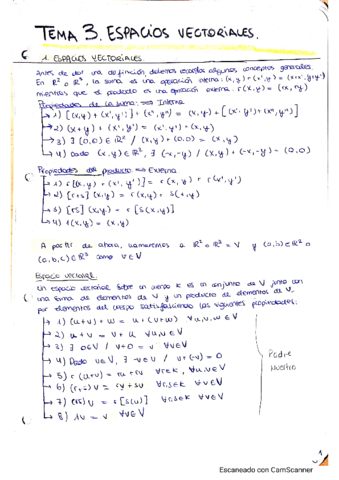 TEMA 3. ESPACIOS VECTORIALES.
1. ESPACIOS VECTORIALES.
Antes de dar una definición debemos recordar algunos conceptos generales.
En R² o R³, la suma es una operación interna: (x,y)+(x',y') = (x+x', y+y')
mientras que el producto es una operación externa. r(x,y) = (rx, ry)
Propiedades de la suma: => Interna
→ 1) [(x,y)+(x',y')] + (x'',y'') = (x,y) + [(x',y')+(x'',y'')]
→ 2) (x+y) + (x',y') = (x',y')+(x,y)
→ 3) ∃ (0,0) ∈ R² / (x,y)+(0,0) = (x,y)
→ 4) Dado (x,y) ∈ R², ∃ (-x,-y) / (x,y)+(-x,-y) = (0,0)
Propiedades del producto => Externa
→ 1) r[(x,y)+(x',y')] = r(x,y) + r(x',y')
→ 2) [r+s](x,y) = r(x,y) + s(x,y)
→ 3) [rs](x,y) = r[s(x,y)]
→ 4) 1(x,y) = (x,y)
A partir de ahora, llamaremos a R² o R³ = V y (a,b) ∈ R² o
(a,b,c) ∈ R³ como v ∈ V
Espacio vectorial.
Un espacio vectorial sobre un cuerpo K es un conjunto de V junto con
una suma de elementos de V y un producto de elementos de V,
por elementos del cuerpo satisfaciendo las siguientes propiedades:
→ 1) (u+v)+w = u+(v+w) ∀u,v,w ∈ V
→ 2) u+v = v+u ∀u,v ∈ V
→ 3) ∃ 0∈V / v+0 = v ∀v∈V
→ 4) Dado v∈V, ∃ -v∈V / v+(-v)=0
→ 5) r(u+v) = ru+rv ∀r∈K, ∀u,v∈V
→ 6) (r+s)v = rv+sv ∀r,s∈K ∀v∈V
→ 7) (rs)v = r[s(v)] ∀r,s∈K ∀v∈V
→ 8) 1v = v ∀v∈V
Padre
Nuestro
1
Escaneado con CamScanner